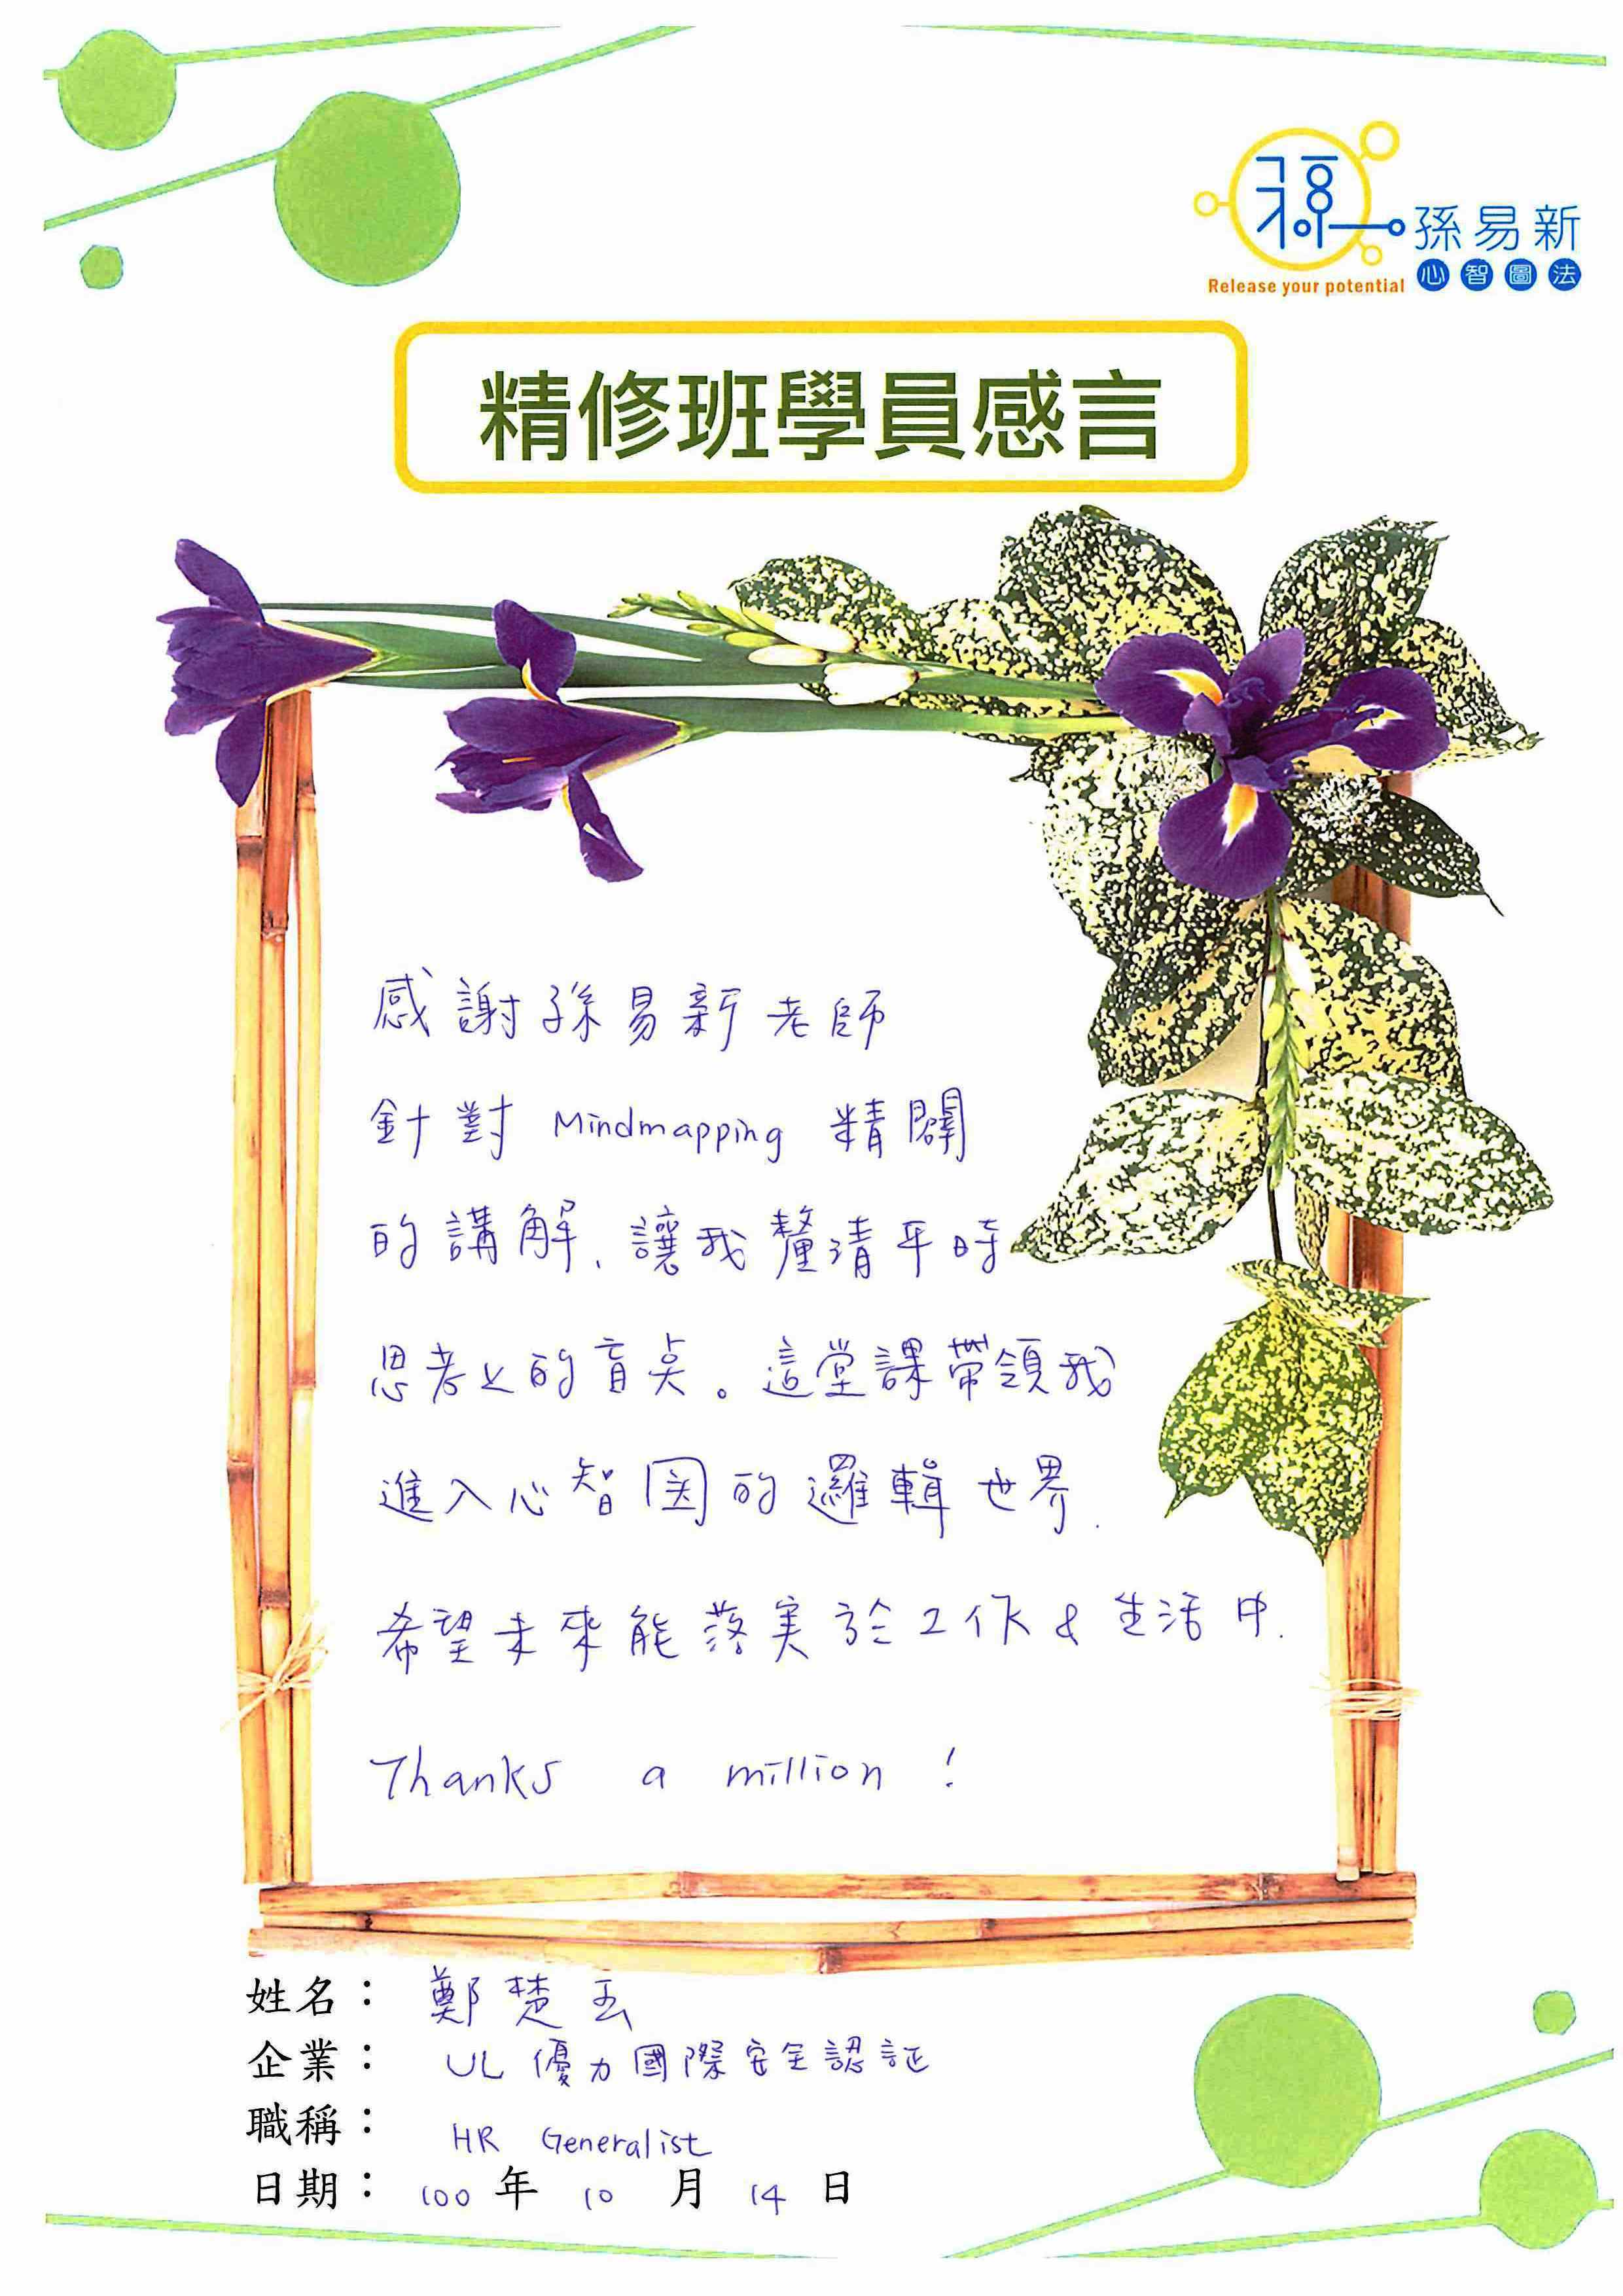 孫易新
心智圖法
Release your potential
精修班學員感言
感謝孫易新老師
針對 Mindmapping 精闢
的講解、讓我釐清平時
思考上的盲点。這堂課帶領我
進入心智図的邏輯世界.
希望未來能落実於工作&生活中.
Thanks a million !
姓名： 鄭楚玉
企業： UL 優力國際安全認証
職稱： HR Generalist
日期： 100 年 10 月 14 日